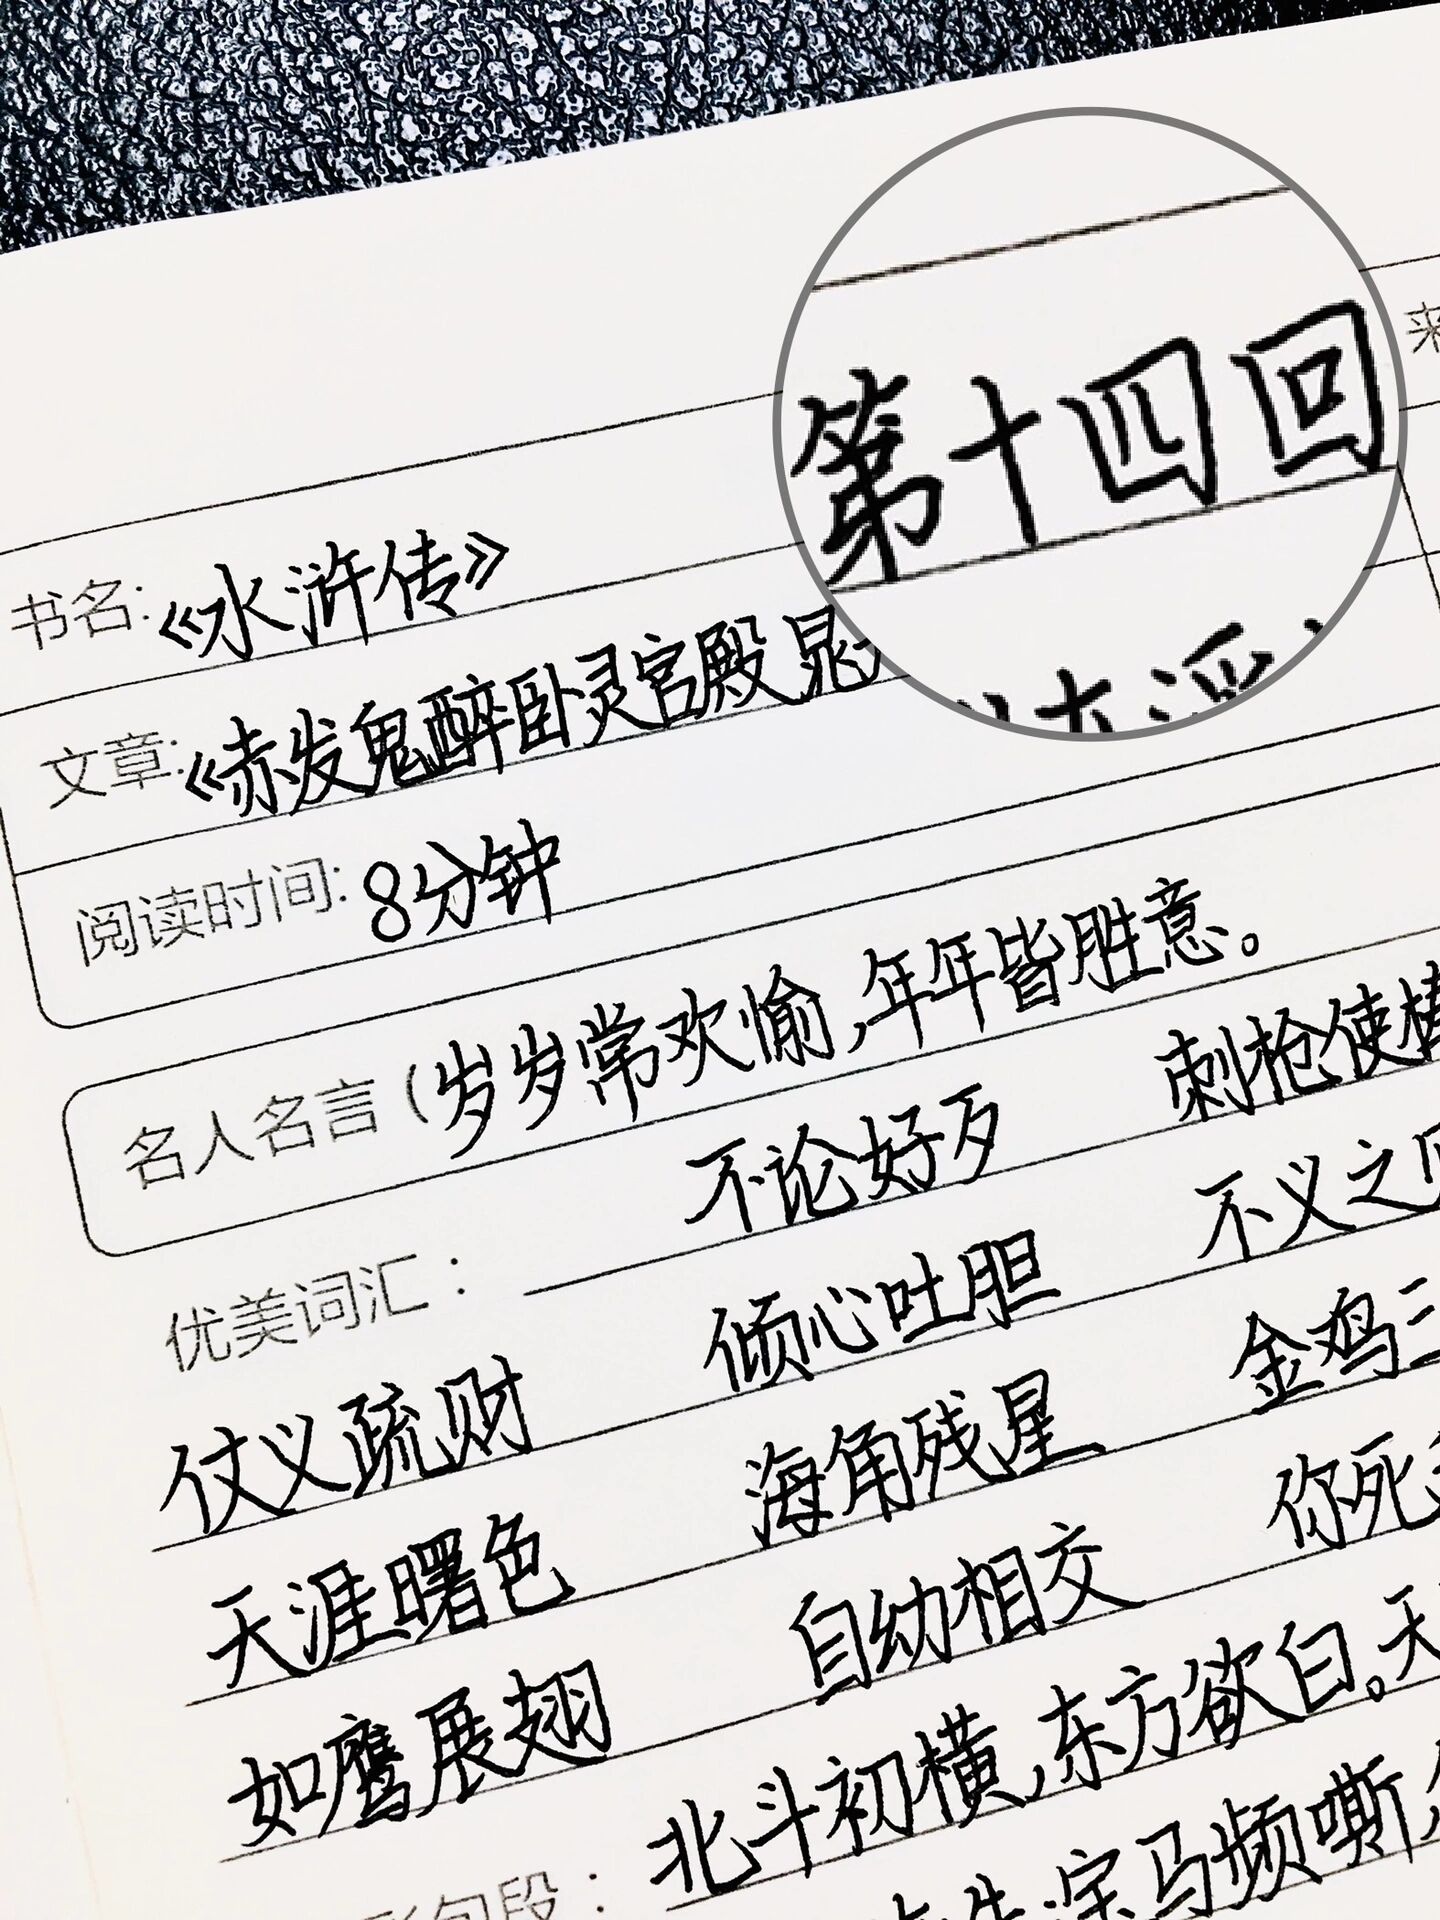 第十四回
书名:《水浒传》
文章:《赤发鬼醉卧灵官殿 晁
阅读时间: 8分钟
名人名言(岁岁常欢愉,年年皆胜意。
不论好歹 刺枪使棒
优美词汇: 倾心吐胆 不义之
仗义疏财 海角残星 金鸡三
天涯曙色 自幼相交 你死
如鹰展翅 北斗初横,东方欲白。天
句段: 宝马频嘶,